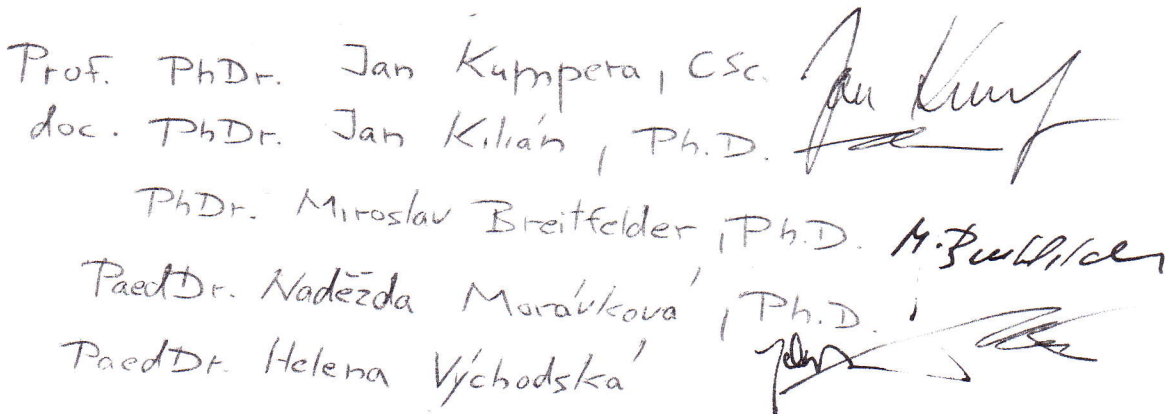 Prof. PhDr. Jan Kumpera, CSc.
doc. PhDr. Jan Kilián, Ph.D.
PhDr. Miroslav Breitfelder, Ph.D.
PaedDr. Naděžda Morávková, Ph.D.
PaedDr. Helena Východská